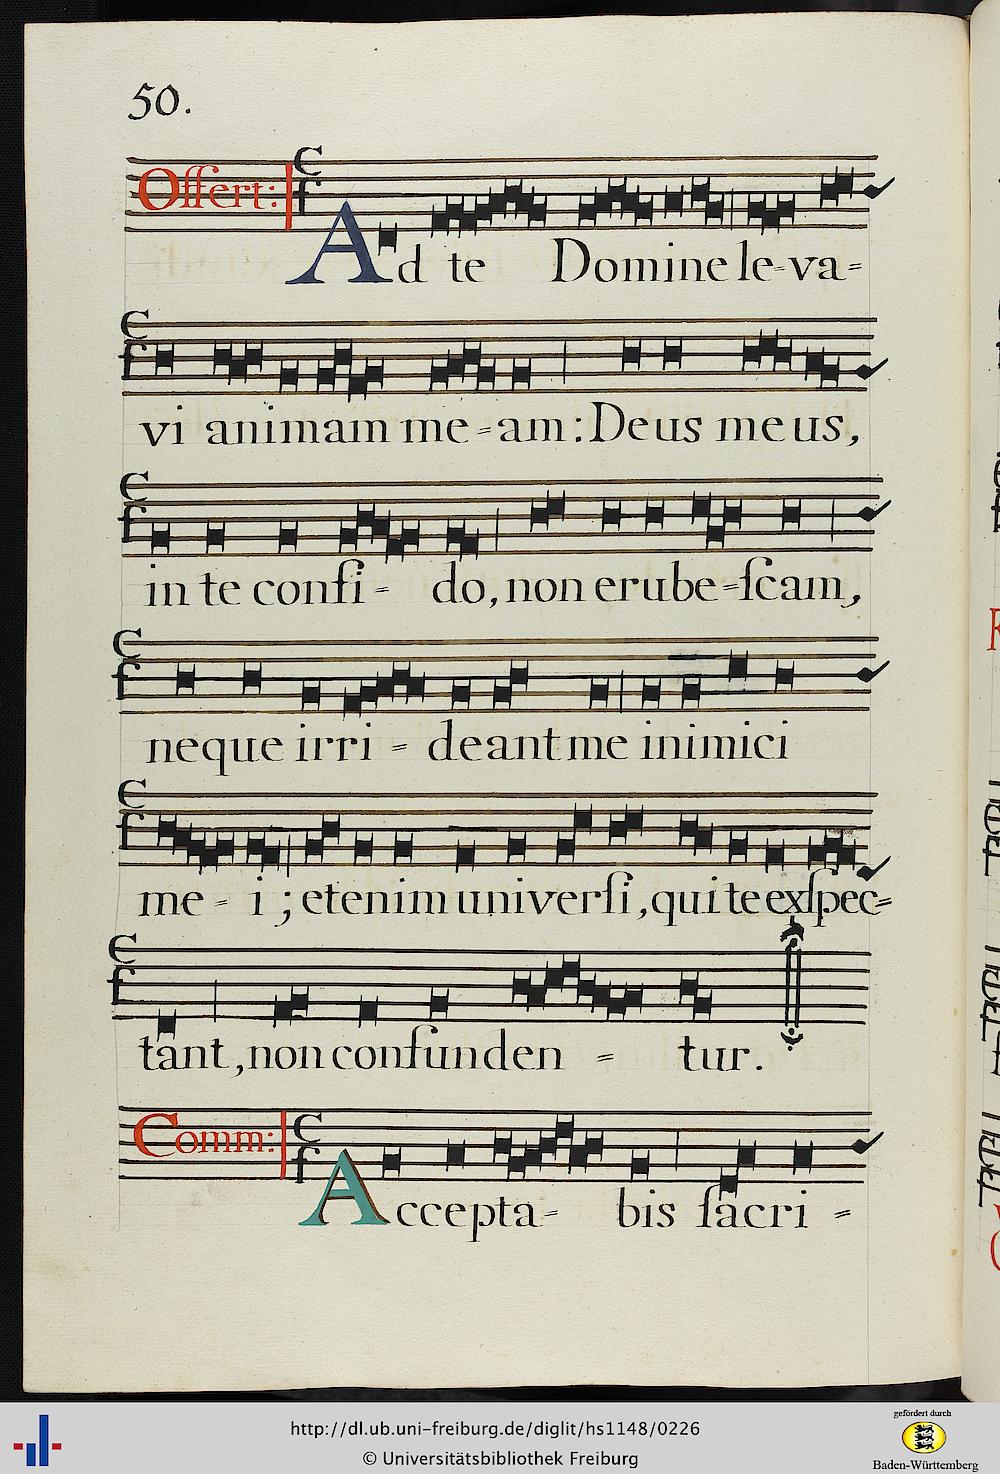 50.
Offert:
Ad te Domine le-va-
vi animam me-am: Deus meus,
in te confi- do, non erube-ſcam,
neque irri- deant me inimici
me- i; etenim univerſi, qui te exſpec-
tant, non confunden - tur.
Comm:
Accepta- bis ſacri -
http://dl.ub.uni-freiburg.de/diglit/hs1148/0226
© Universitätsbibliothek Freiburg
gefördert durch
Baden-Württemberg